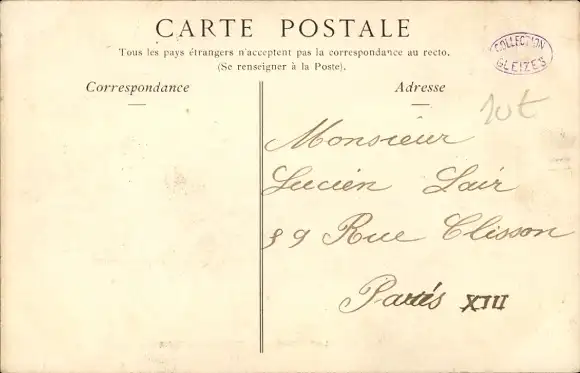 CARTE POSTALE
Tous les pays étrangers n'acceptent pas la correspondance au recto.
(Se renseigner à la Poste).
COLLECTION
GLEIZES
Correspondance
Adresse
10t
Monsieur
Lucien Lair
89 Rue Clisson
Paris XIII